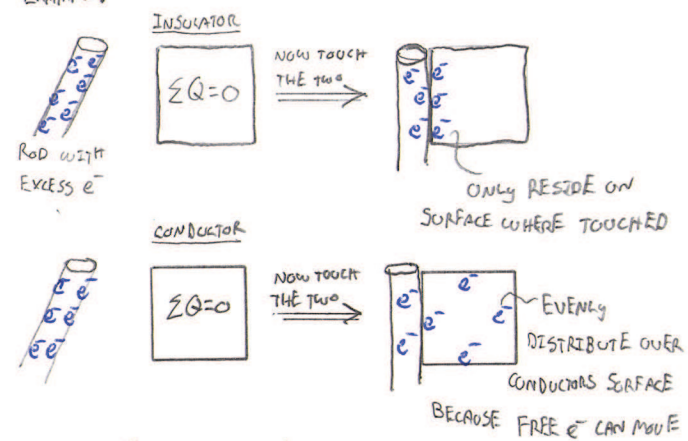 INSULATOR
e⁻ e⁻ e⁻ e⁻ e⁻ e⁻
ΣQ=0
NOW TOUCH
THE TWO
e⁻ e⁻
e⁻ e⁻
e⁻ e⁻
ROD WITH
EXCESS e⁻
ONLY RESIDE ON
SURFACE WHERE TOUCHED
CONDUCTOR
e⁻ e⁻ e⁻ e⁻ e⁻ e⁻
ΣQ=0
NOW TOUCH
THE TWO
e⁻ e⁻
e⁻ e⁻
e⁻ e⁻
EVENLY
DISTRIBUTE OVER
CONDUCTORS SURFACE
BECAUSE FREE e⁻ CAN MOVE